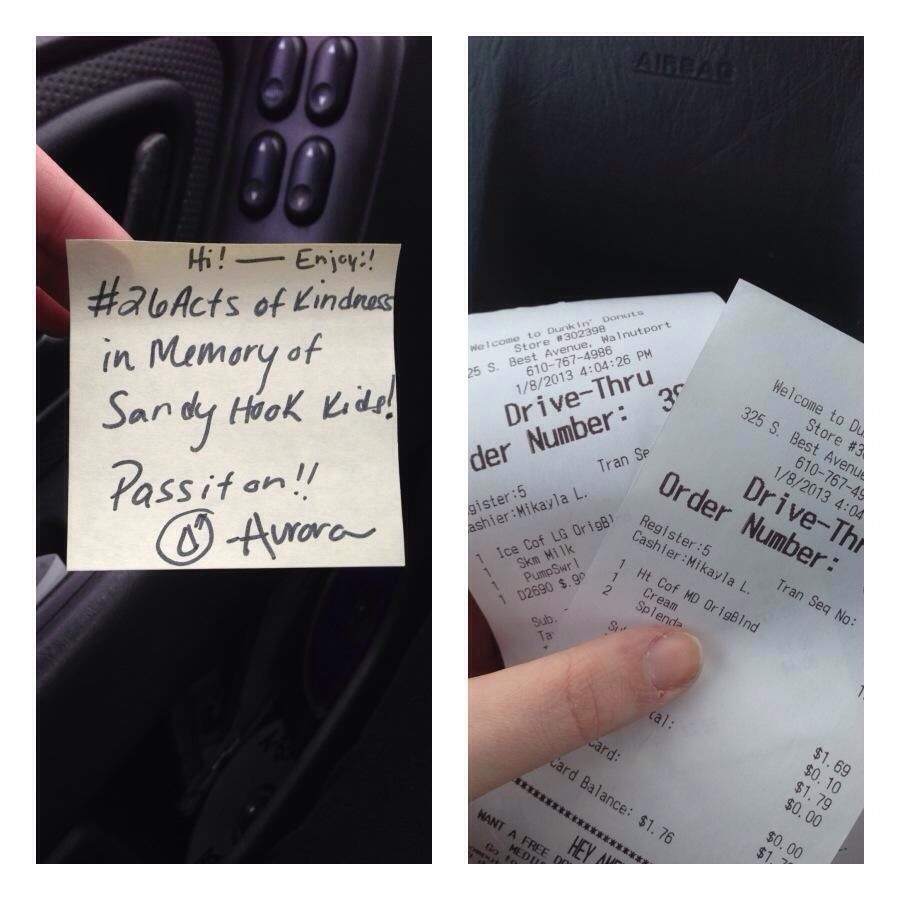 Hi! — Enjoy!!
#26Acts of Kindness
in Memory of
Sandy Hook Kids!
Pass it on!!
-Aurora
AIRBAG
Welcome to Dunkin' Donuts
Store #302398
25 S. Best Avenue, Walnutport
610-767-4986
1/8/2013 4:04:26 PM
Drive-Thru
der Number: 39
Tran Se
gister:5
ashier:Mikayla L.
1 Ice Cof LG OrigBl
1 Skm Milk
1 PumpSwrl
1 D2690 $.99
Sub.
Ta
Welcome to Du
Store #3
325 S. Best Avenue
610-767-49
1/8/2013 4:04
Drive-Thr
Order Number:
Register:5
Cashier:Mikayla L.
Tran Seq No:
1 Ht Cof MD OrigBlnd
1 Cream
2 Splenda
Su
tal:
$1.69
$0.10
$1.79
Card:
$0.00
Card Balance: $1.76
$0.00
$1.7
********************
WANT A FREE DO
HEY AM